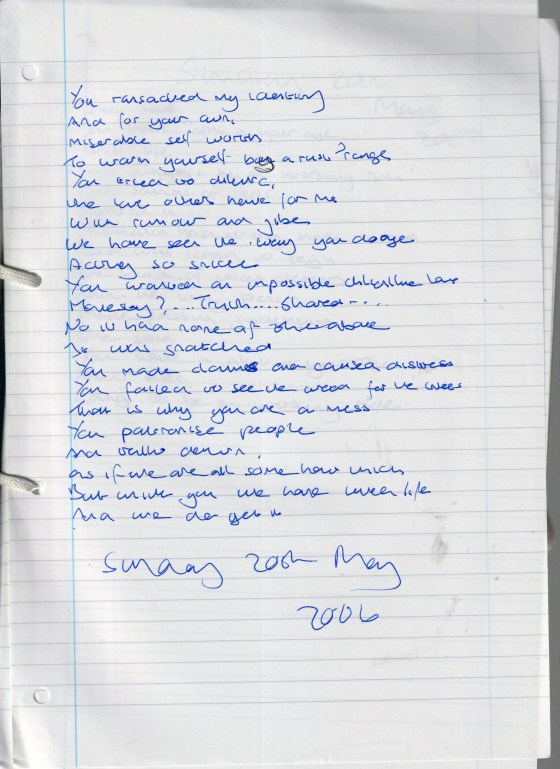 You ransacked my identity
And for your own,
Miserable self worth
To warm yourself by a rush? range
You tried to dilute,
the love others have for me
With rumour and jibe
We have seen the way you dodge
Acting so
You wanted an impossible childlike love
Honesty?... Truth.... Shared....
No it had none of the above
It was snatched
You made claims and caused distress
You failed to see the wood for the trees
That is why you are a mess
You patronise people
And talk down,
as if we are all some how thick
But unlike you we have lived life
And we do get it
Sunday 20th May
2006